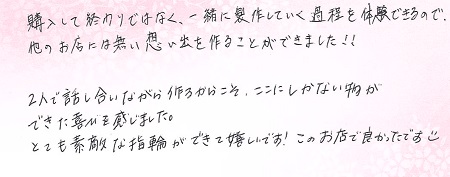 購入して終わりではなく、一緒に製作していく過程を体験できるので、
他のお店には無い想い出を作ることができました!!
2人で話し合いながら作るからこそ、ここにしかない物が
できた喜びを感じました。
とても素敵な指輪ができて嬉しいです!このお店で良かったです